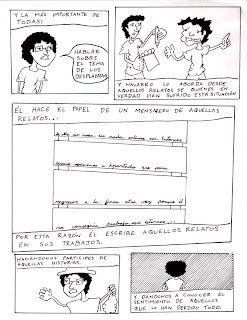 Y LA MÁS IMPORTANTE DE
TODAS!
HABLAR
SOBRE
EL TEMA
DE LOS
DESPLAZADOS
Y NAVARRO LO ABORDA DESDE
AQUELLOS RELATOS DE QUIENES EN
VERDAD HAN SUFRIDO ESTÁ SITUACIÓN
ÉL HACE EL PAPEL DE UN MENSAJERO DE AQUELLOS
RELATOS...
regresar a la finca otra vez porque él
no conseguía trabajo
POR ESTA RAZÓN ÉL ESCRIBE AQUELLOS RELATOS
EN SUS TRABAJOS.
HACIENDONOS PARTICIPES DE
AQUELLAS HISTORIAS.
Y DÁNDONOS A CONOCER EL
SENTIMIENTO DE AQUELLOS
QUE LO HAN PERDIDO TODO.